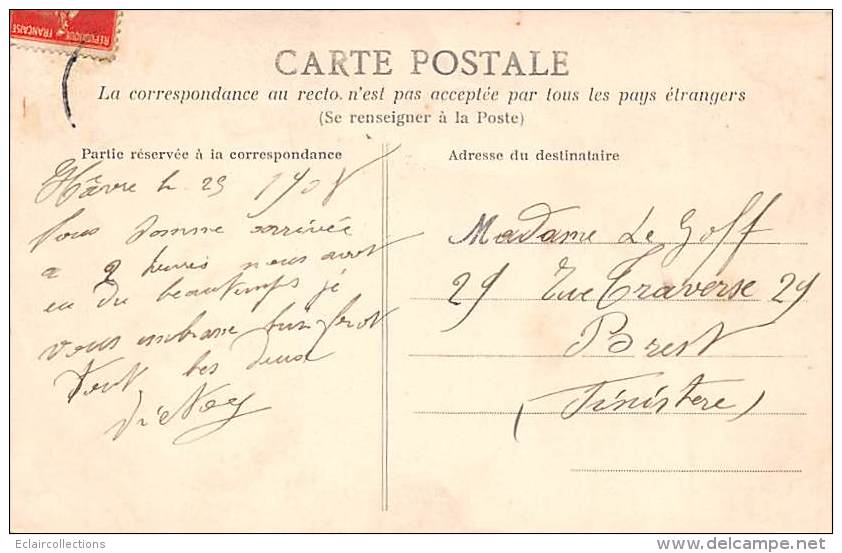 REPUBLIQUE FRANÇAISE
CARTE POSTALE
La correspondance au recto. n'est pas acceptée par tous les pays étrangers
(Se renseigner à la Poste)
Partie réservée à la correspondance
Hâvre le 29 1908
Nous somme arrivée
a 2 heures nous avont
eu du beautemps je
vous embrasse bien fort
tout les deux
Adresse du destinataire
Madame Le Goff
29 Rue Traverse 29
Brest
(Finistere)
Eclaircollections
www.delcampe.net